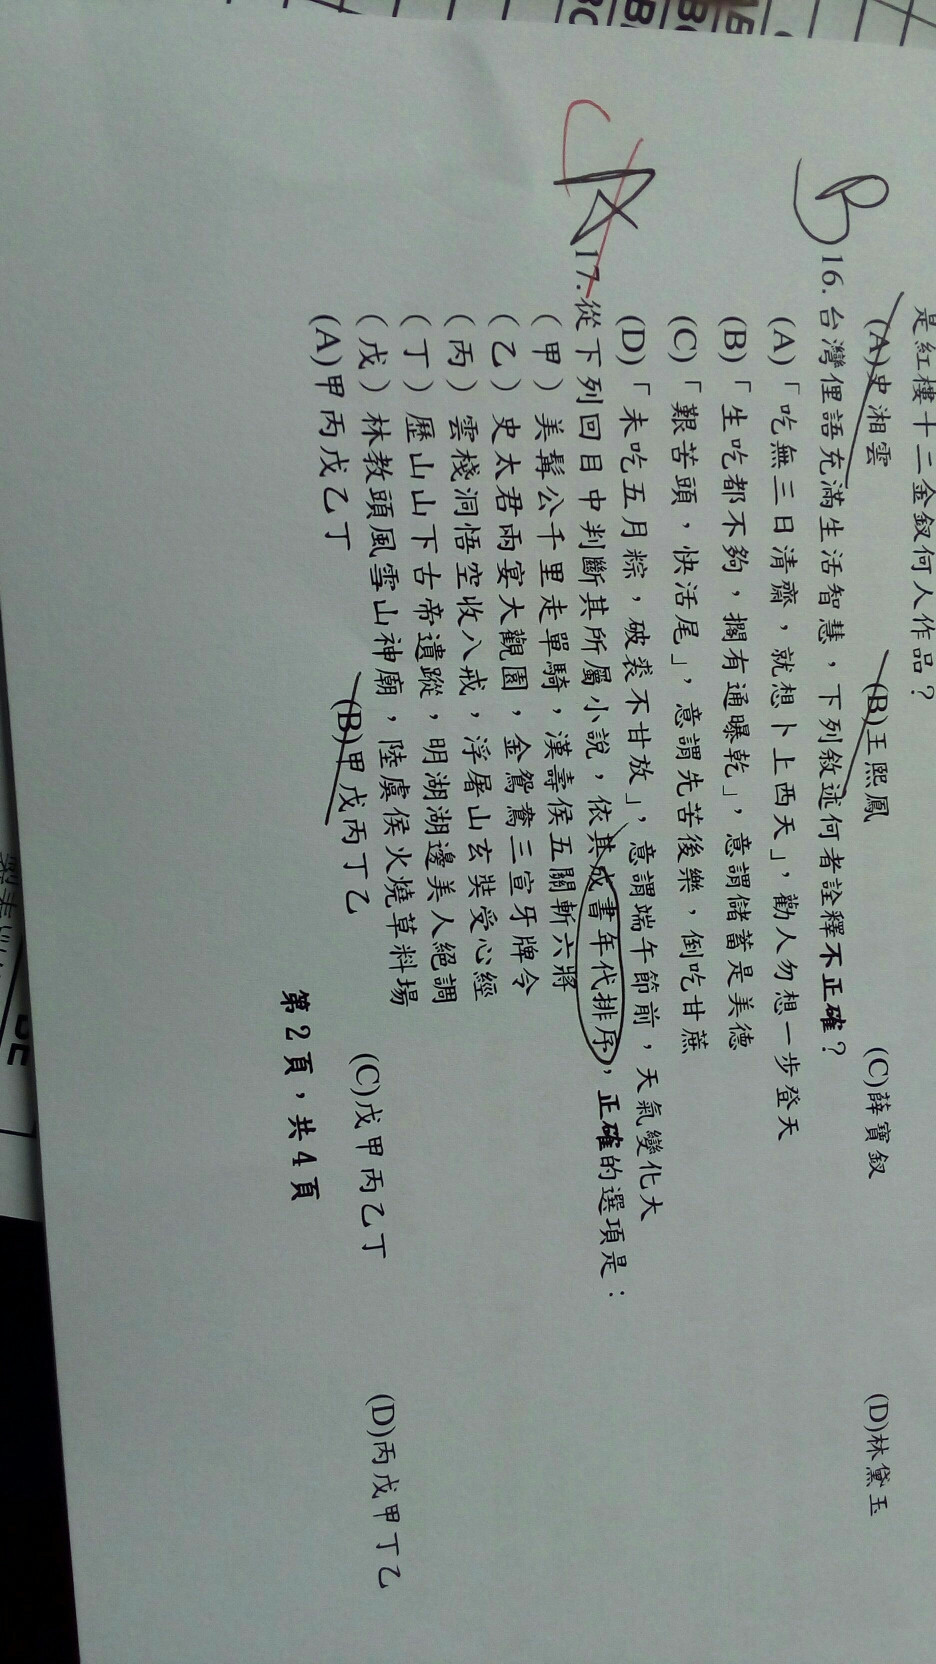 是紅樓十二金釵何人作品？
(A)史湘雲 (B)王熙鳳 (C)薛寶釵 (D)林黛玉
B 16.台灣俚語充滿生活智慧，下列敘述何者詮釋不正確？
(A)「吃無三日清齋，就想卜上西天」，勸人勿想一步登天
(B)「生吃都不夠，擱有通曝乾」，意謂儲蓄是美德
(C)「艱苦頭，快活尾」，意謂先苦後樂，倒吃甘蔗
(D)「未吃五月粽，破裘不甘放」，意謂端午節前，天氣變化大
17.從下列回目中判斷其所屬小說，依其成書年代排序，正確的選項是：
(甲) 美髯公千里走單騎，漢壽侯五關斬六將
(乙) 史太君兩宴大觀園，金鴛鴦三宣牙牌令
(丙) 雲棧洞悟空收八戒，浮屠山玄奘受心經
(丁) 歷山山下古帝遺蹤，明湖湖邊美人絕調
(戊) 林教頭風雪山神廟，陸虞侯火燒草料場
(A)甲丙戊乙丁 (B)甲戊丙丁乙 (C)戊甲丙乙丁 (D)丙戊甲丁乙
第2頁，共4頁